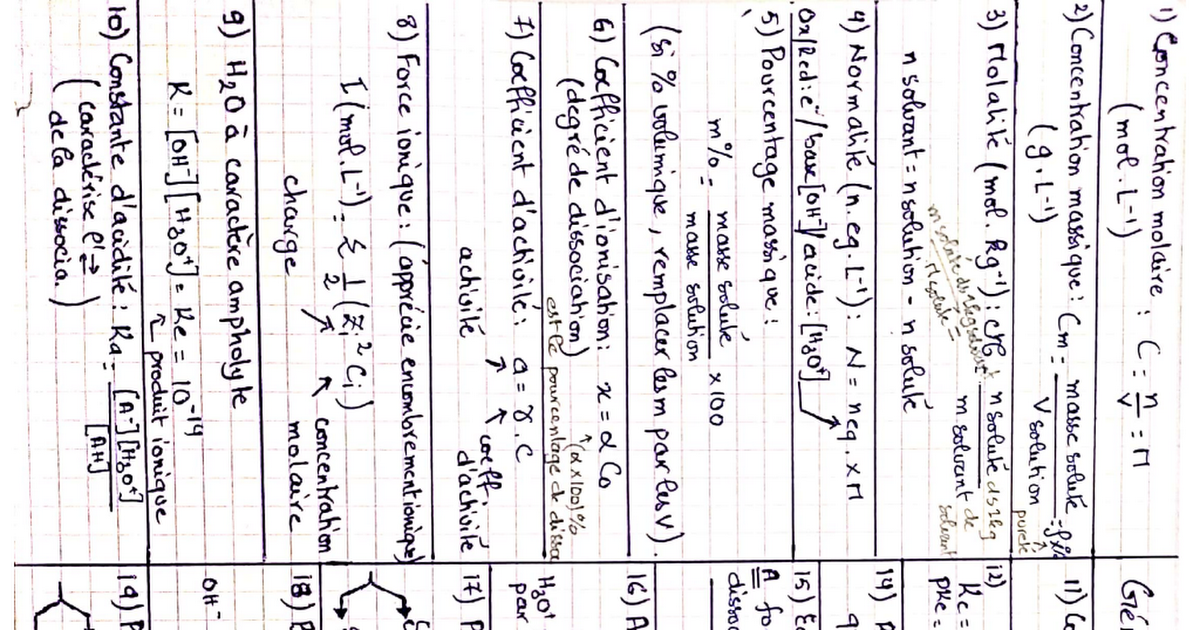 1) Concentration molaire : C = n/V = M
(mol.L⁻¹)
2) Concentration massique : Cm = masse soluté / V solution
(g.L⁻¹)
pureté
3) Molalité (mol.kg⁻¹) : n soluté ds 1kg de solvant
m solvant
m soluté
M soluté =
n solvant = n solution - n soluté
4) Normalité (n.eq.L⁻¹) : N = neq. x M
Ox/Red : e⁻/base [OH⁻]/acide : [H₃O⁺]
5) Pourcentage massique :
m% = masse soluté / masse solution x 100
(si % volumique, remplacer les m par les V).
6) Coefficient d'ionisation : x = α Co
(degré de dissociation) ↑ (α x 100)%
est le pourcentage de disso
7) Coefficient d'activité : a = γ . C
activité ↗ ↖ coeff. d'activité
8) Force ionique : (apprécie encombrement ionique)
I (mol.L⁻¹) = Σ 1/2 (Zi² Ci)
charge ↗ ↖ concentration molaire
9) H₂O à caractère ampholyte
K = [OH⁻][H₃O⁺] = Ke = 10⁻¹⁴
↖ produit ionique
10) Constante d'acidité : Ka = [A⁻][H₃O⁺] / [AH]
(caractérise l'⇌
de la dissocia.)
Gén
11) Co
12)
Kc =
pKe =
14) P
9
15) Ec
A fo
disso
16) A
H₃O⁺
par
17) P
18) P
OH⁻
19) P